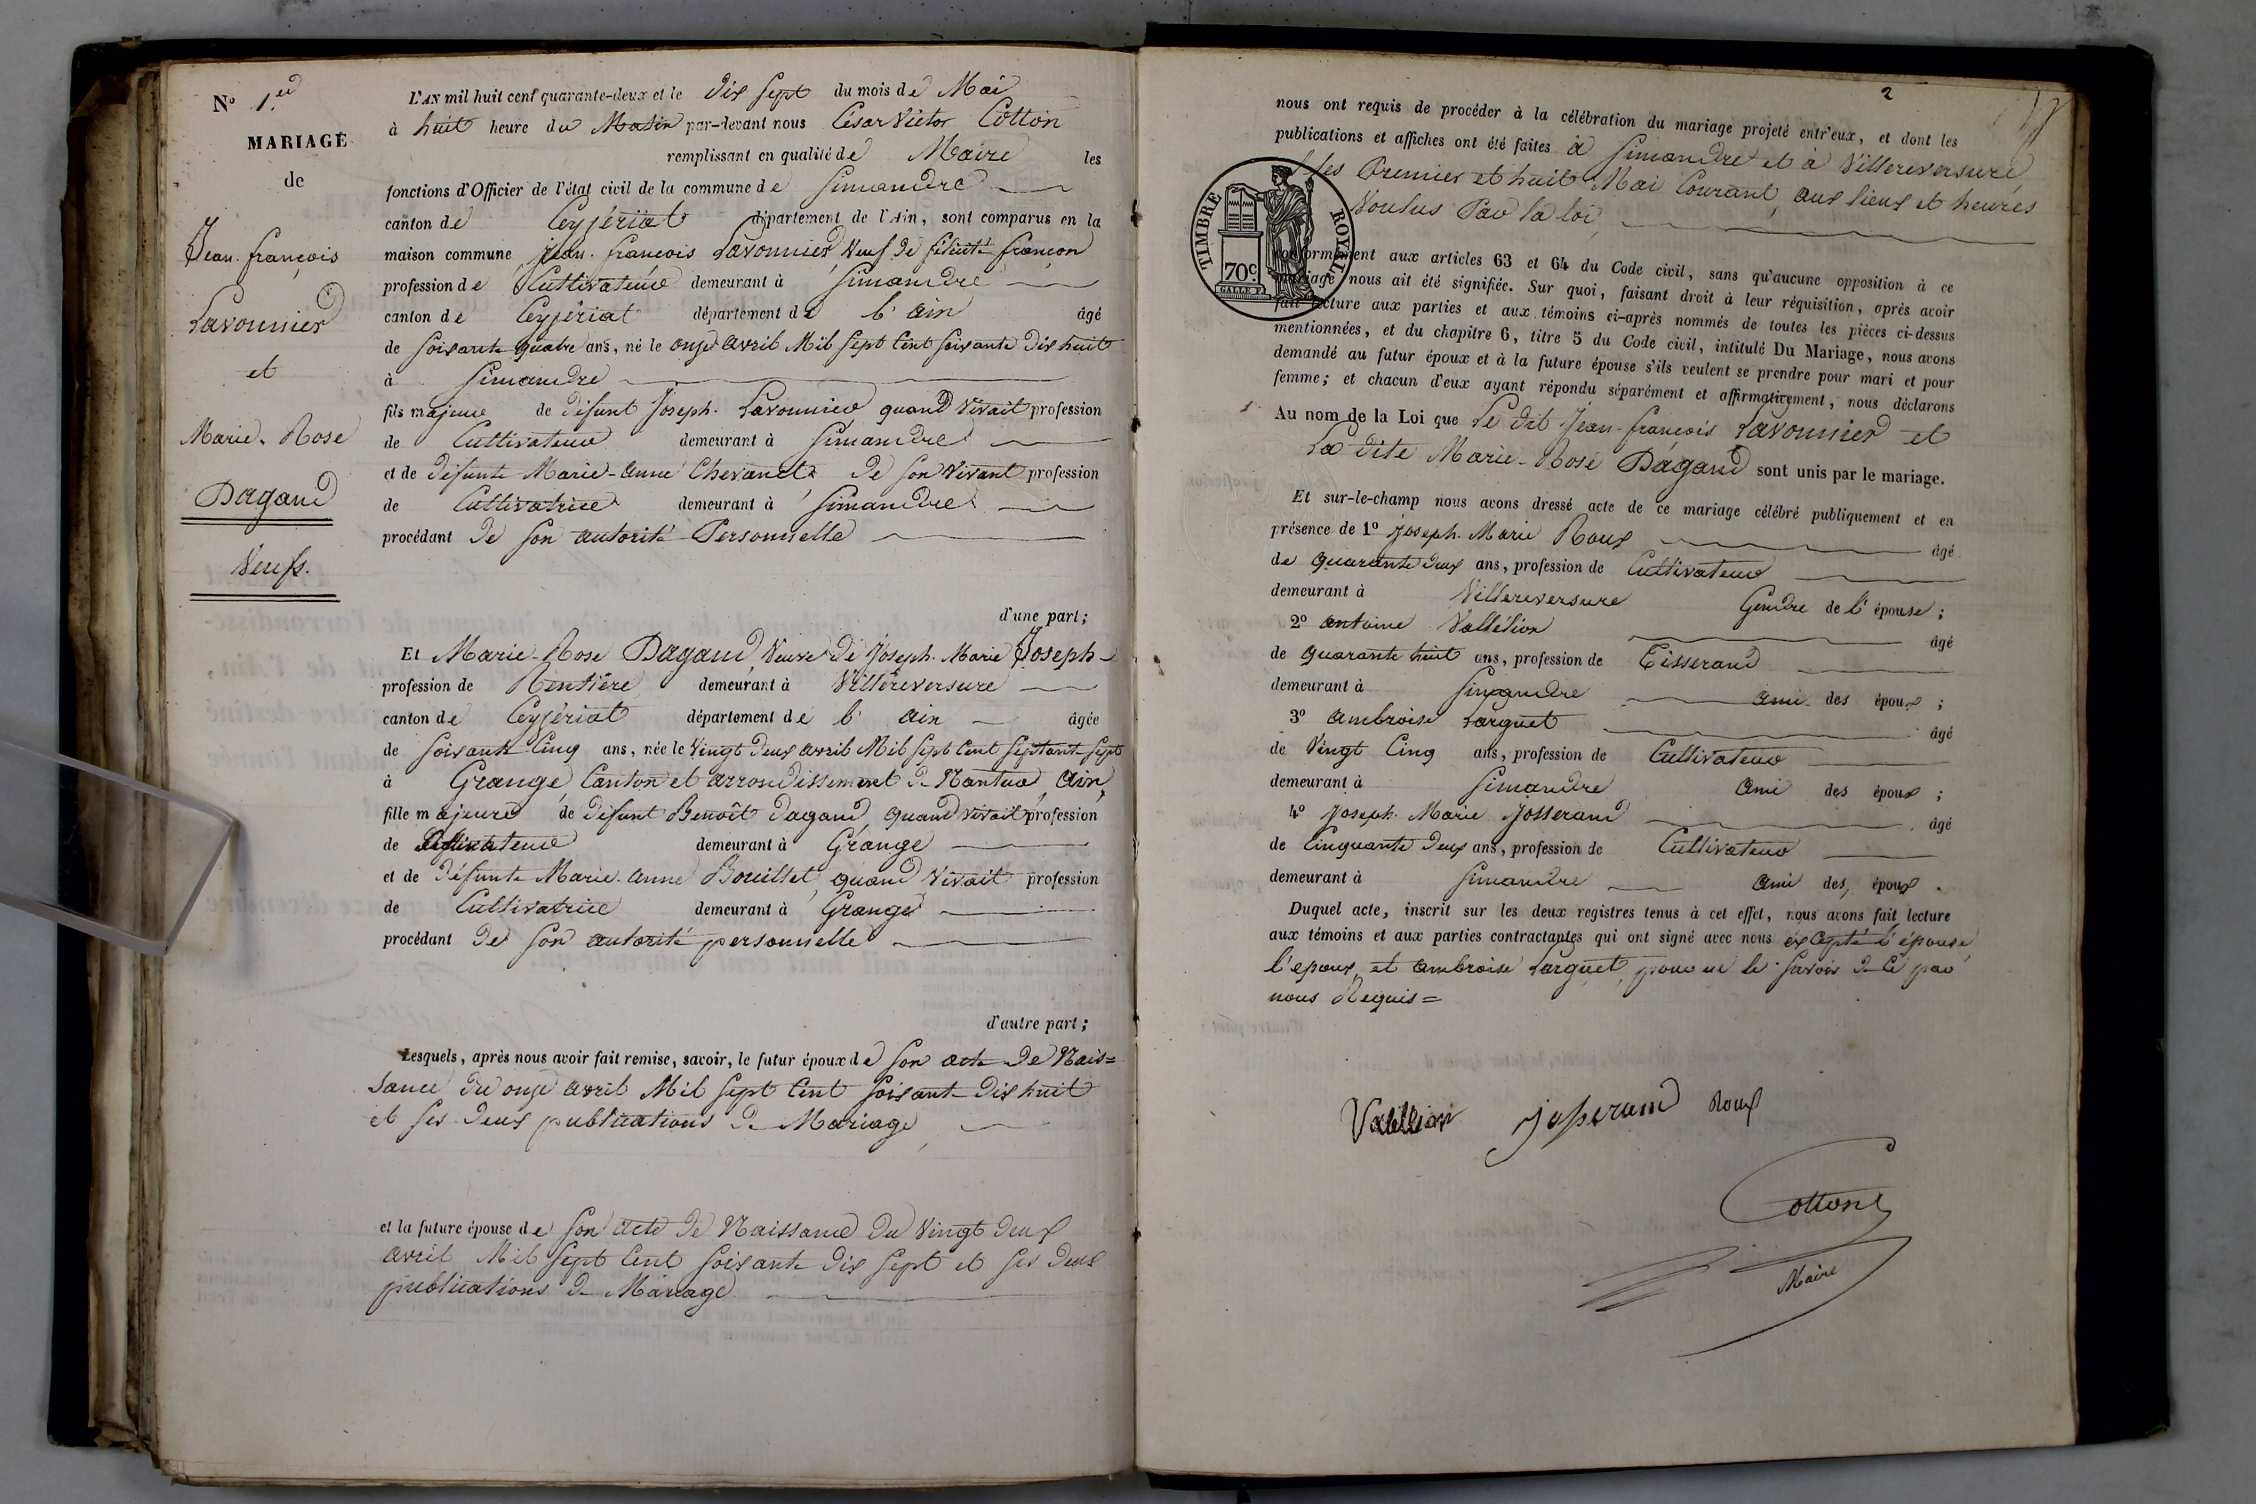 N° 1.er
MARIAGE
de
Jean-françois
Lavonnier
et
Marie-Rose
Dagand
Veufs.
L'AN mil huit cent quarante-deux et le dix sept du mois de Mai
à huit heure du Matin par-devant nous César Victor Cotton
remplissant en qualité de Maire les
fonctions d'Officier de l'état civil de la commune de Simandre
canton de Ceyzériat département de l'Ain, sont comparus en la
maison commune Jean-françois Lavonnier, Veuf de françon
profession de Cultivateur demeurant à Simandre
canton de Ceyzériat département de l'ain âgé
de soixante quatre ans, né le onze avril Mil sept cent soixante dix huit
à Simandre
fils majeur de défunt Joseph Lavonnier quand vivait profession
de Cultivateur demeurant à Simandre
et de défunte Marie-anne Chevanet de son vivant profession
de Cultivatrice demeurant à Simandre
procédant de son autorité Personnelle
d'une part;
Et Marie-Rose Dagand, Veuve de Joseph-Marie Joseph
profession de Rentière demeurant à Villereversure
canton de Ceyzériat département de l'ain âgée
de soixante cinq ans, née le Vingt deux avril Mil sept cent septante sept
à Grange, Canton et arrondissement de Nantua, ain,
fille majeure de défunt Benoît Dagand, quand vivait profession
de Cultivateur demeurant à Grange
et de défunte Marie-anne Bouillet, quand vivait profession
de Cultivatrice demeurant à Grange
procédant de son autorité personnelle
d'autre part;
Lesquels, après nous avoir fait remise, savoir, le futur époux de son acte de Nais=
sance du onze avril Mil sept cent soixante dix huit
et ses deux publications de Mariage
et la future épouse de son acte de Naissance du Vingt deux
avril Mil sept cent soixante dix sept et ses deux
publications de Mariage
2
nous ont requis de procéder à la célébration du mariage projeté entr'eux, et dont les
publications et affiches ont été faites à Simandre et à Villereversure
les Premier et huit Mai Courant, aux lieux et heures
Voulus Par la loi,
TIMBRE ROYAL
70c
GALLE F.
conformément aux articles 63 et 64 du Code civil, sans qu'aucune opposition à ce
mariage nous ait été signifiée. Sur quoi, faisant droit à leur réquisition, après avoir
fait lecture aux parties et aux témoins ci-après nommés de toutes les pièces ci-dessus
mentionnées, et du chapitre 6, titre 5 du Code civil, intitulé Du Mariage, nous avons
demandé au futur époux et à la future épouse s'ils veulent se prendre pour mari et pour
femme; et chacun d'eux ayant répondu séparément et affirmativement, nous déclarons
Au nom de la Loi que Le dit Jean-françois Lavonnier et
La dite Marie-Rose Dagand sont unis par le mariage.
Et sur-le-champ nous avons dressé acte de ce mariage célébré publiquement et en
présence de 1° Joseph-Marie Roux âgé
de quarante deux ans, profession de Cultivateur
demeurant à Villereversure Gendre de l'épouse;
2° antoine Vallélion âgé
de quarante huit ans, profession de Tisserand
demeurant à Simandre ami des époux;
3° ambroise Larguet âgé
de Vingt Cinq ans, profession de Cultivateur
demeurant à Simandre ami des époux;
4° Joseph-Marie Josserand âgé
de Cinquante deux ans, profession de Cultivateur
demeurant à Simandre ami des époux.
Duquel acte, inscrit sur les deux registres tenus à cet effet, nous avons fait lecture
aux témoins et aux parties contractantes qui ont signé avec nous excepté l'épouse
l'epoux, et ambroise Larguet, pour ne le savoir de ce par
nous Requis=
Josserand Roux
Cotton
Maire